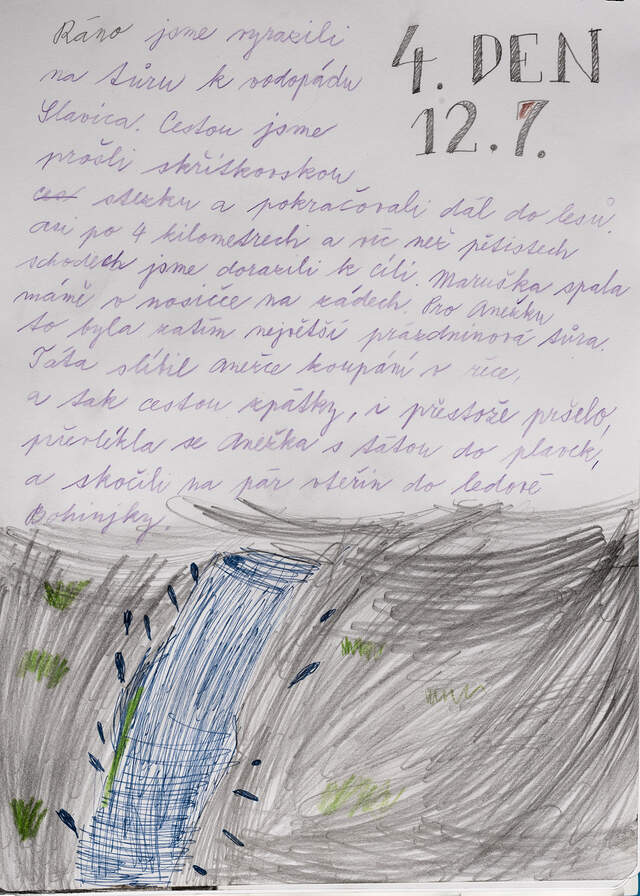 4. DEN
12.7.
Ráno jsme vyrazili
na túru k vodopádu
Slavica. Cestou jsme
prošli skřítkovskou
stezku a pokračovali dál do lesů.
asi po 4 kilometrech a víc než pětistech
schodech jsme dorazili k cíli. Maruška spala
mámě v nosičce na zádech. Pro Anežku
to byla zatím největší prázdninová túra.
Táta slíbil Anežce koupání v řece,
a tak cestou zpátky, i přestože pršelo,
převlékla se Anežka s tátou do plavek,
a skočili na pár vteřin do ledové
Bohinjky.